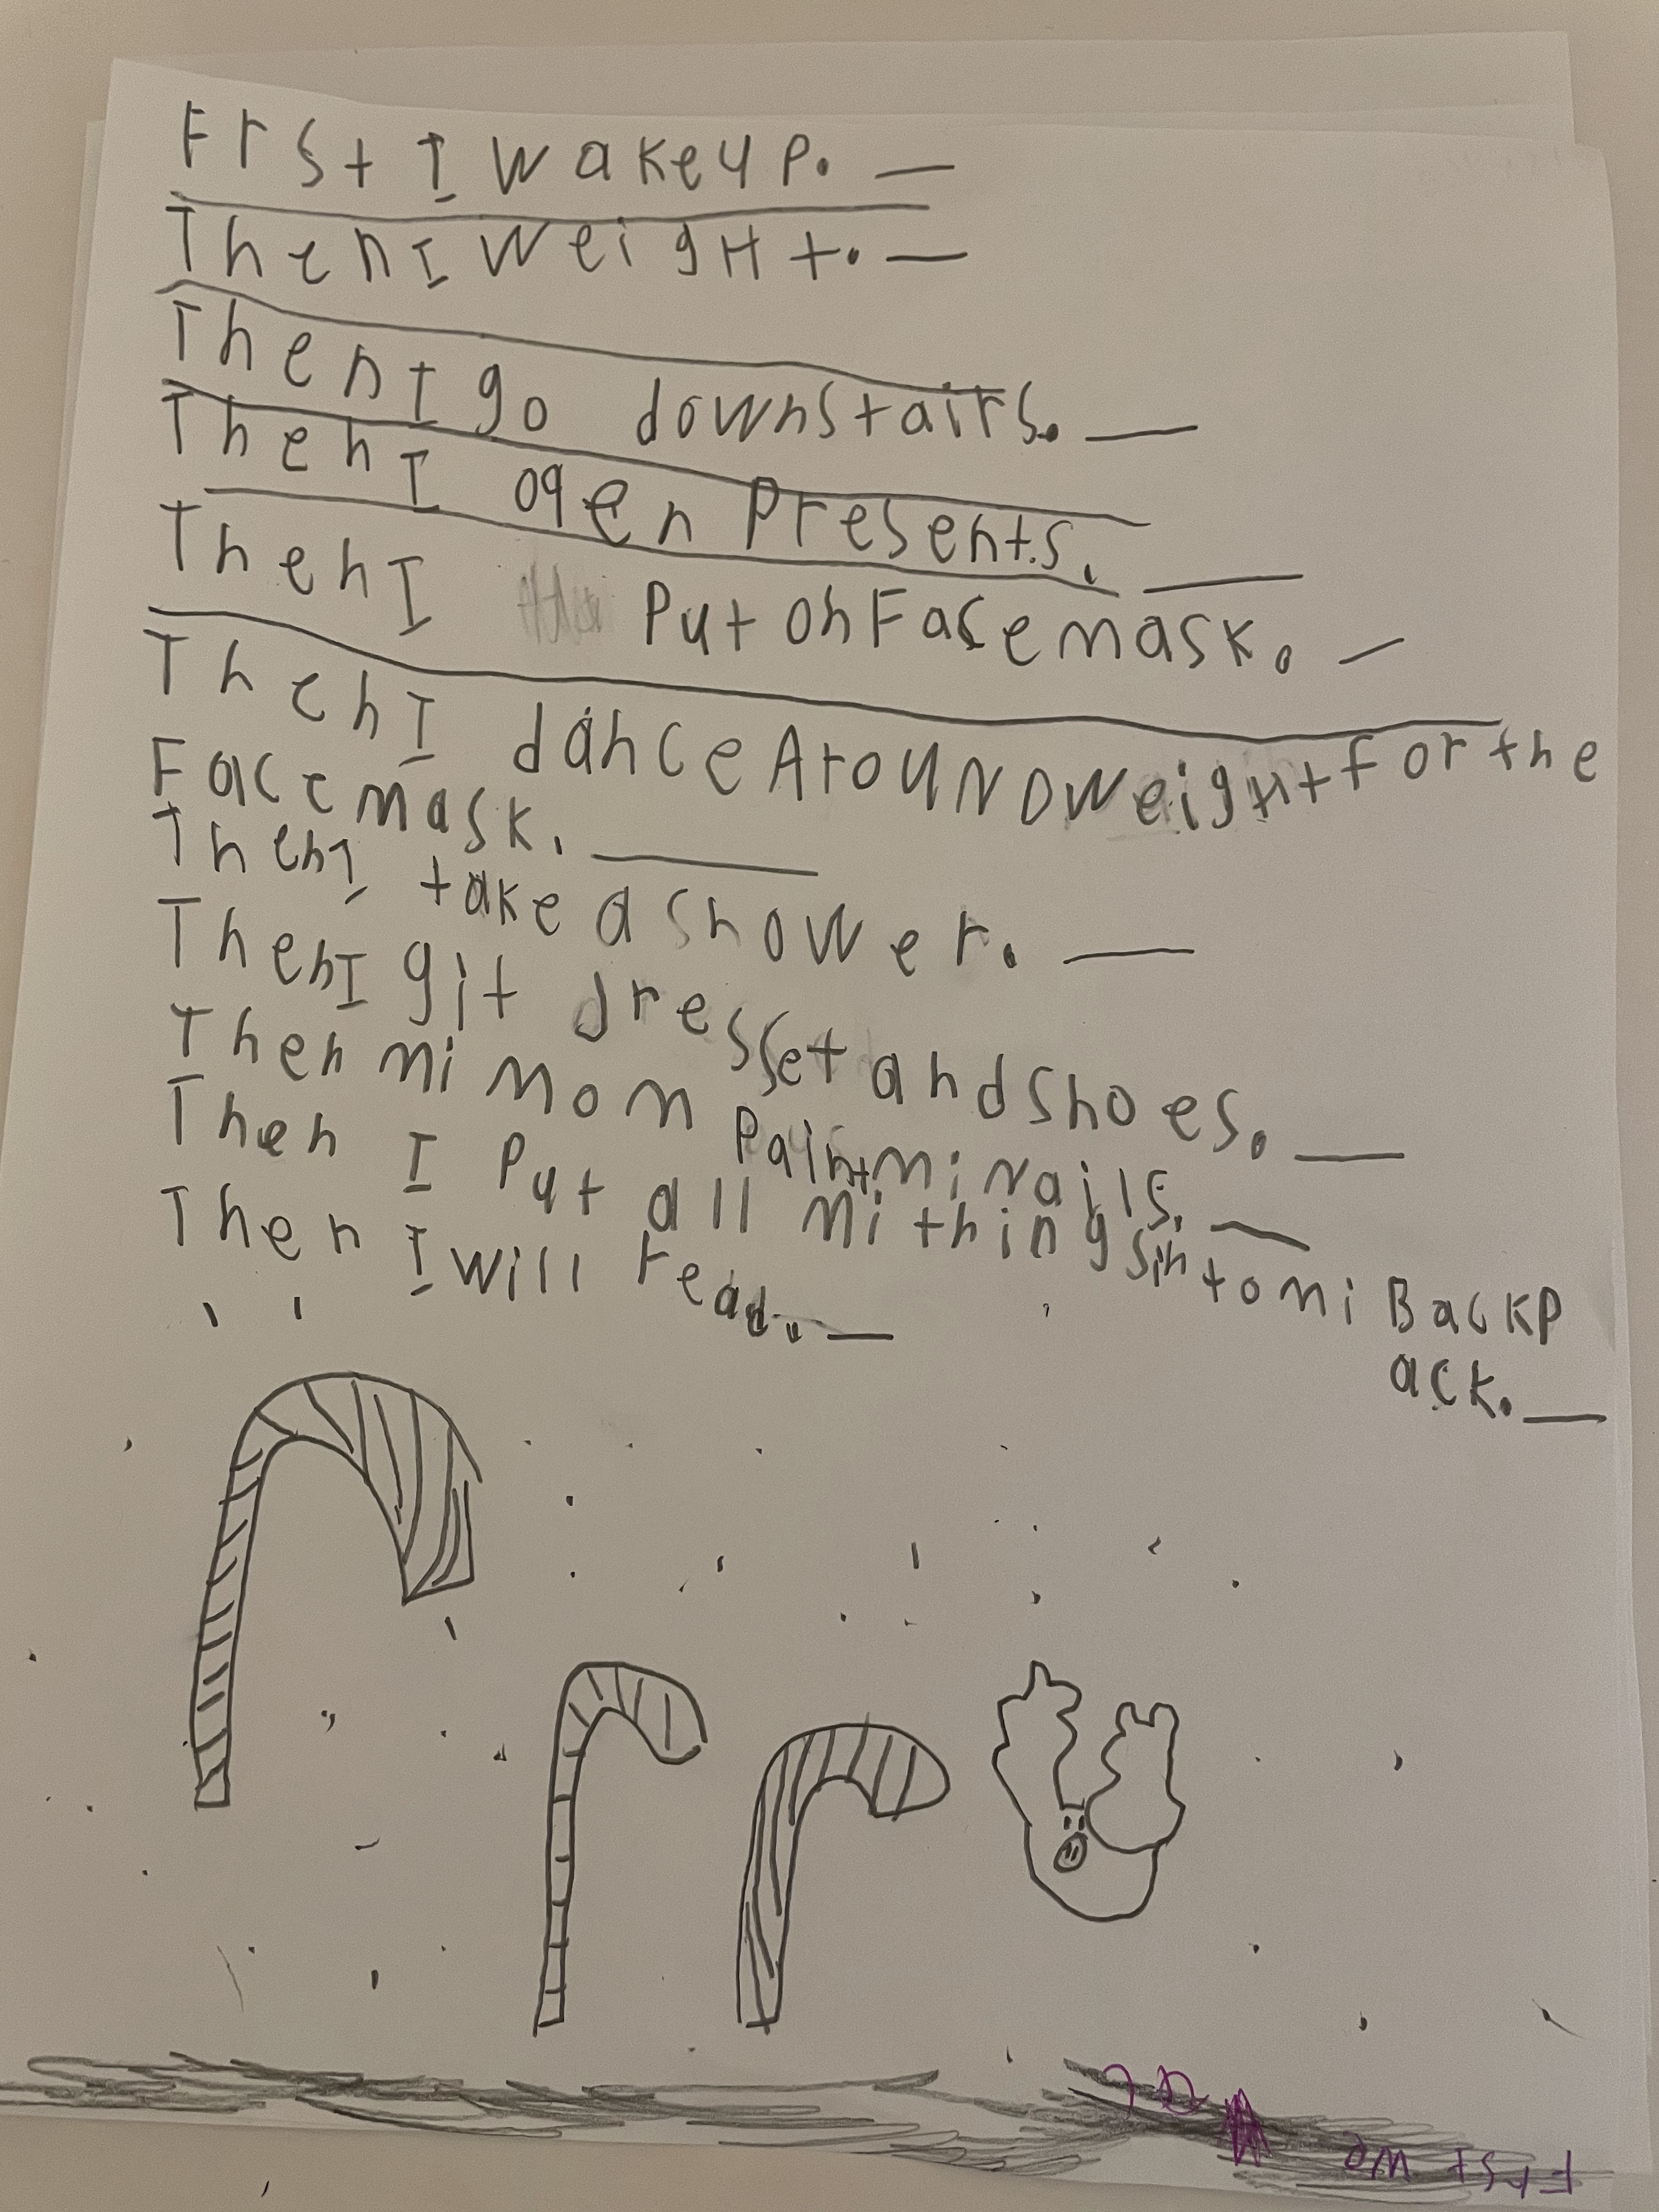 Frst I wakeup.
Then I weigHt.
Then I go downstairs.
Then I open Presents.
Then I Put on Facemask.
Then I dance AroUND weigHt for the
Facemask.
Then I take a shower.
Then I git dresset and shoes.
Then mi mom Paint mi Nails.
Then I Put all mi things into mi BackP
ack.
Then I will read.
Frst we